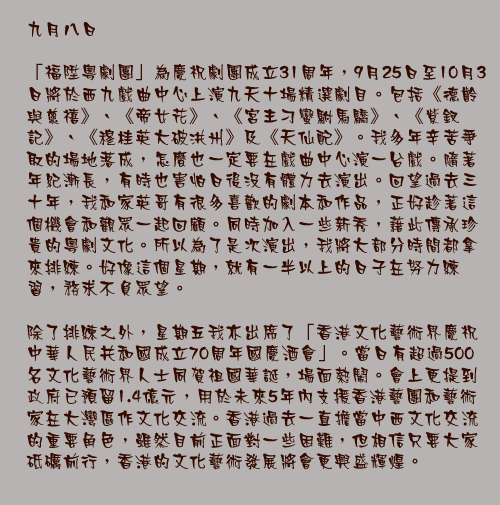 九月八日
「福陞粵劇團」為慶祝劇團成立31周年，9月25日至10月3
日將於西九戲曲中心上演九天十場精選劇目。包括《德齡
與慈禧》、《帝女花》、《宮主刁蠻駙馬驕》、《紫釵
記》、《穆桂英大破洪州》及《天仙配》。我多年辛苦爭
取的場地落成，怎麼也一定要在戲曲中心演一台戲。隨著
年紀漸長，有時也害怕日後沒有體力去演出。回望過去三
十年，我和家英哥有很多喜歡的劇本和作品，正好趁著這
個機會和觀眾一起回顧。同時加入一些新秀，藉此傳承珍
貴的粵劇文化。所以為了是次演出，我將大部分時間都拿
來排練。好像這個星期，就有一半以上的日子在努力練
習，務求不負眾望。
除了排練之外，星期五我亦出席了「香港文化藝術界慶祝
中華人民共和國成立70周年國慶酒會」。當日有超過500
名文化藝術界人士同賀祖國華誕，場面熱鬧。會上更提到
政府已預留1.4億元，用於未來5年內支援香港藝團和藝術
家在大灣區作文化交流。香港過去一直擔當中西文化交流
的重要角色，雖然目前正面對一些困難，但相信只要大家
砥礪前行，香港的文化藝術發展將會更興盛輝煌。